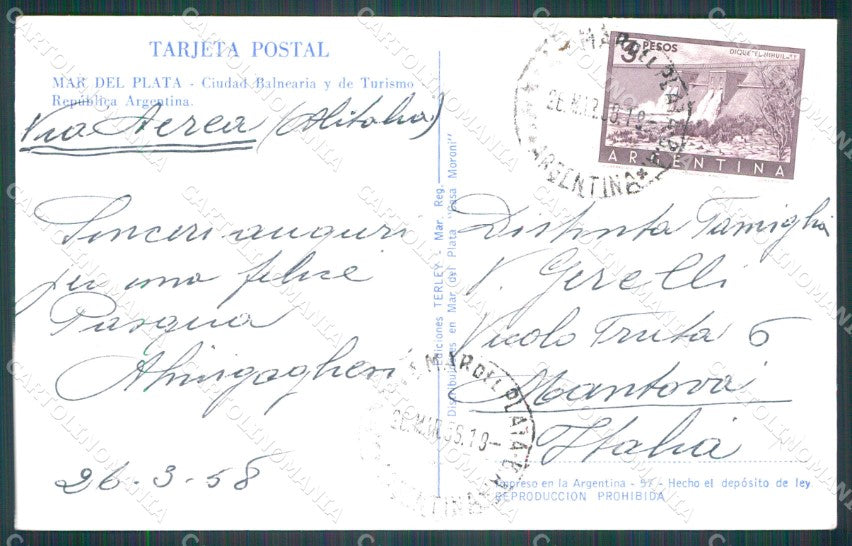 TARJETA POSTAL
MAR DEL PLATA - Ciudad Balnearia y de Turismo
República Argentina.
Via Aerea (Alitalia)
Sinceri auguri
per una felice
Pasqua
26-3-58
Ediciones TERLEY - Mar. Reg.
Distribuidores en Mar del Plata "Casa Moroni"
PESOS
DIQUE "EL NIHUIL"
ARGENTINA
MAR DEL PLATA
26.MAR.58.19-
ARGENTINA
Distinta Famiglia
V. Gerelli
Vicolo Truta 6
Mantova
Italia
MAR DEL PLATA
26.MAR.58.19-
ARGENTINA
Impreso en la Argentina - 57 - Hecho el depósito de ley
REPRODUCCION PROHIBIDA
CARTOLINOMANIA